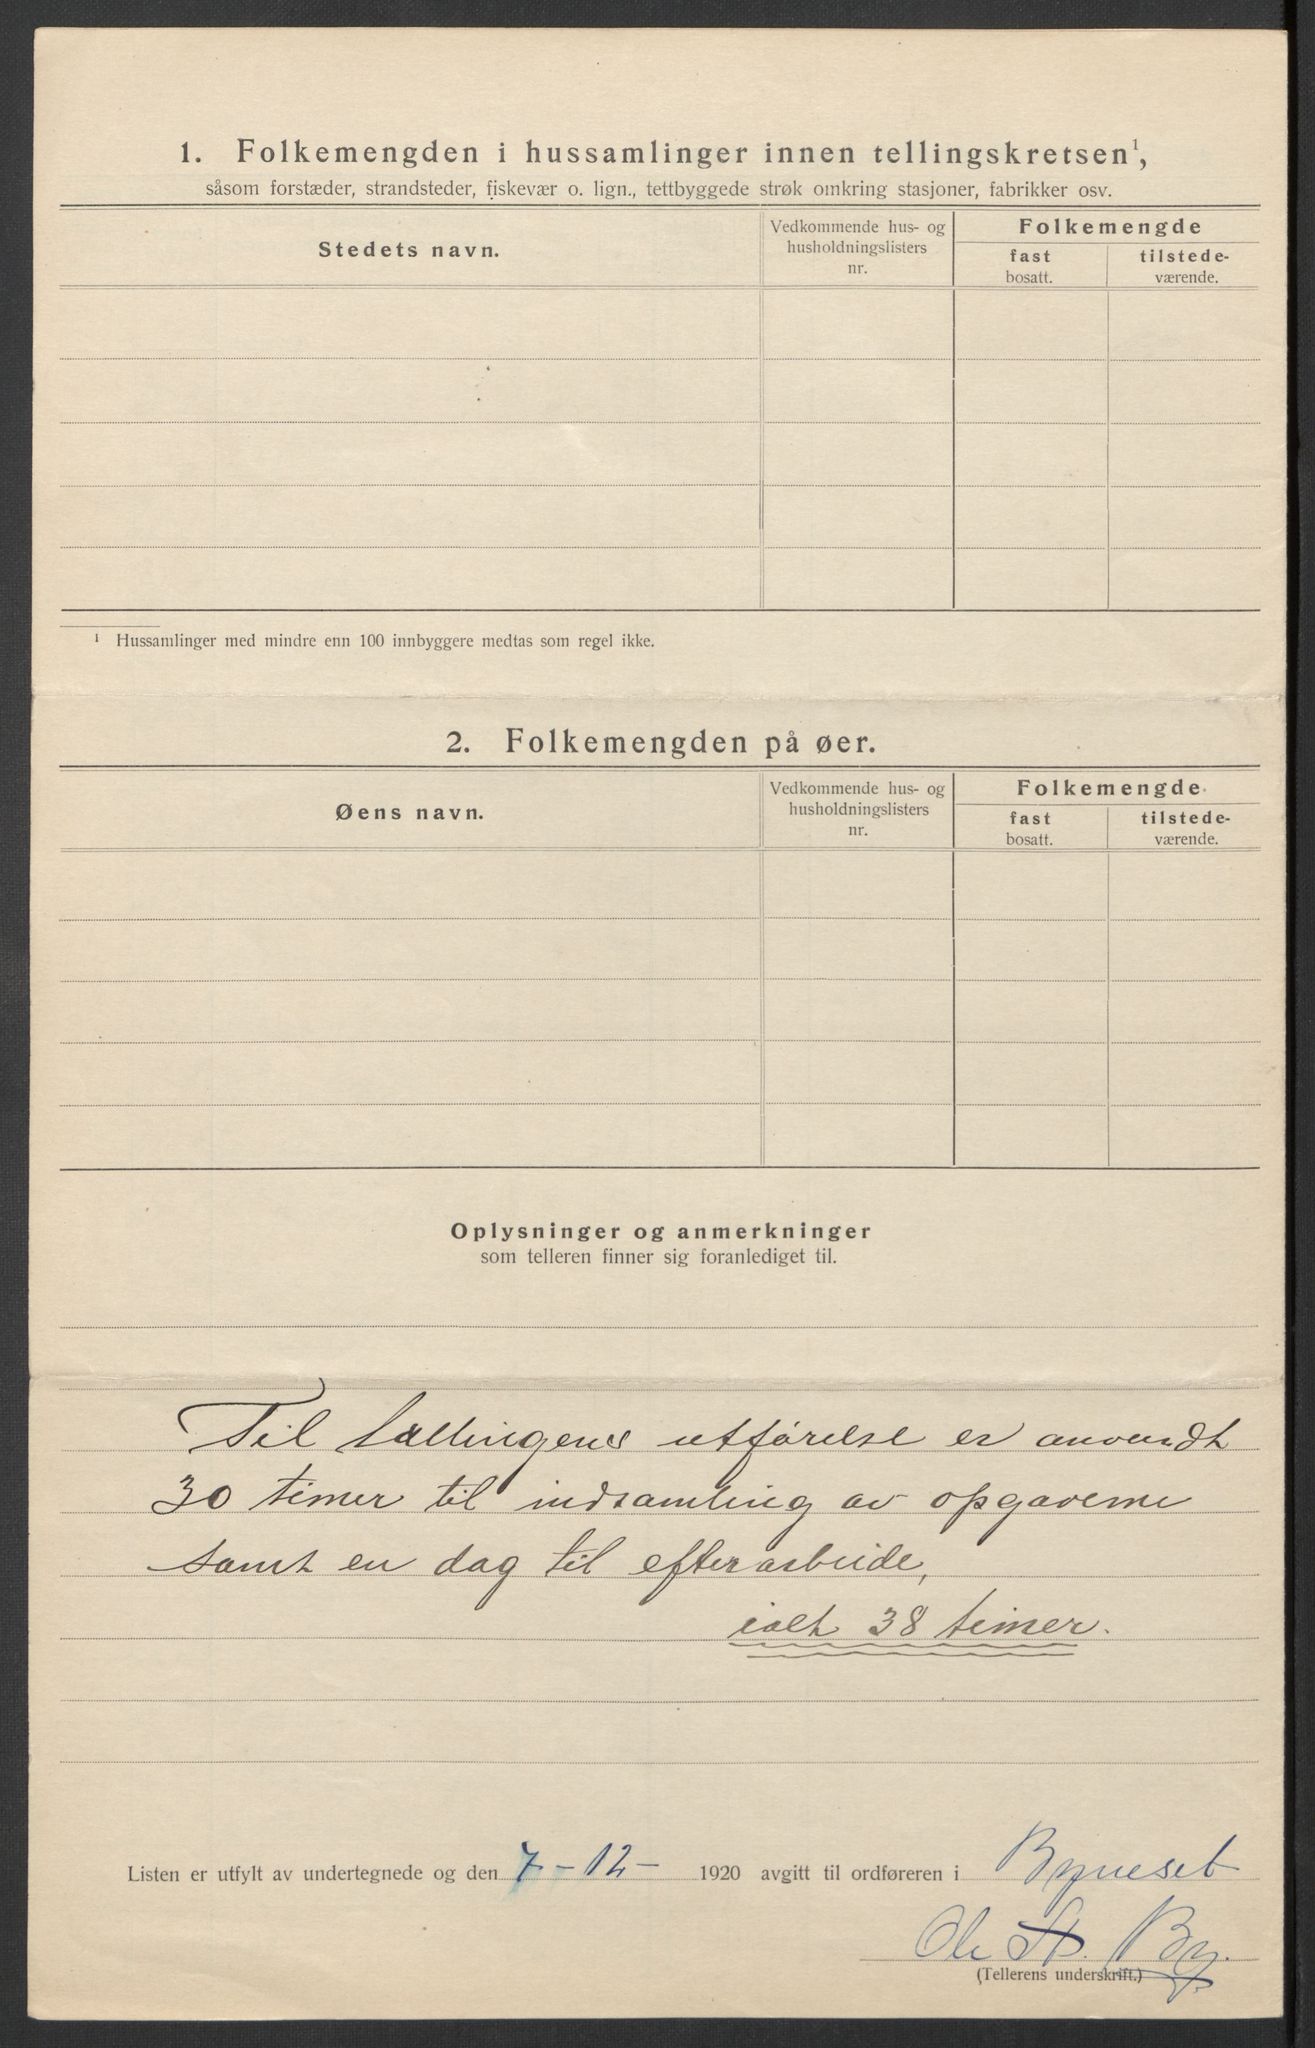 1. Folkemengden i hussamlinger innen tellingskretsen¹,
såsom forstæder, strandsteder, fiskevær o. lign., tettbyggede strøk omkring stasjoner, fabrikker osv.
Stedets navn.
Vedkommende hus- og
husholdningslisters
nr.
Folkemengde
fast
bosatt.
tilstede-
værende.
¹ Hussamlinger med mindre enn 100 innbyggere medtas som regel ikke.
2. Folkemengden på øer.
Øens navn.
Vedkommende hus- og
husholdningslisters
nr.
Folkemengde
fast
bosatt.
tilstede-
værende.
Oplysninger og anmerkninger
som telleren finner sig foranlediget til.
Til tællingens utførelse er anvendt
30 timer til indsamling av opgaverne
samt en dag til efterarbeide,
ialt 38 timer.
Listen er utfylt av undertegnede og den 7-12- 1920 avgitt til ordføreren i Byneset
Ole St. By.
(Tellerens underskrift.)